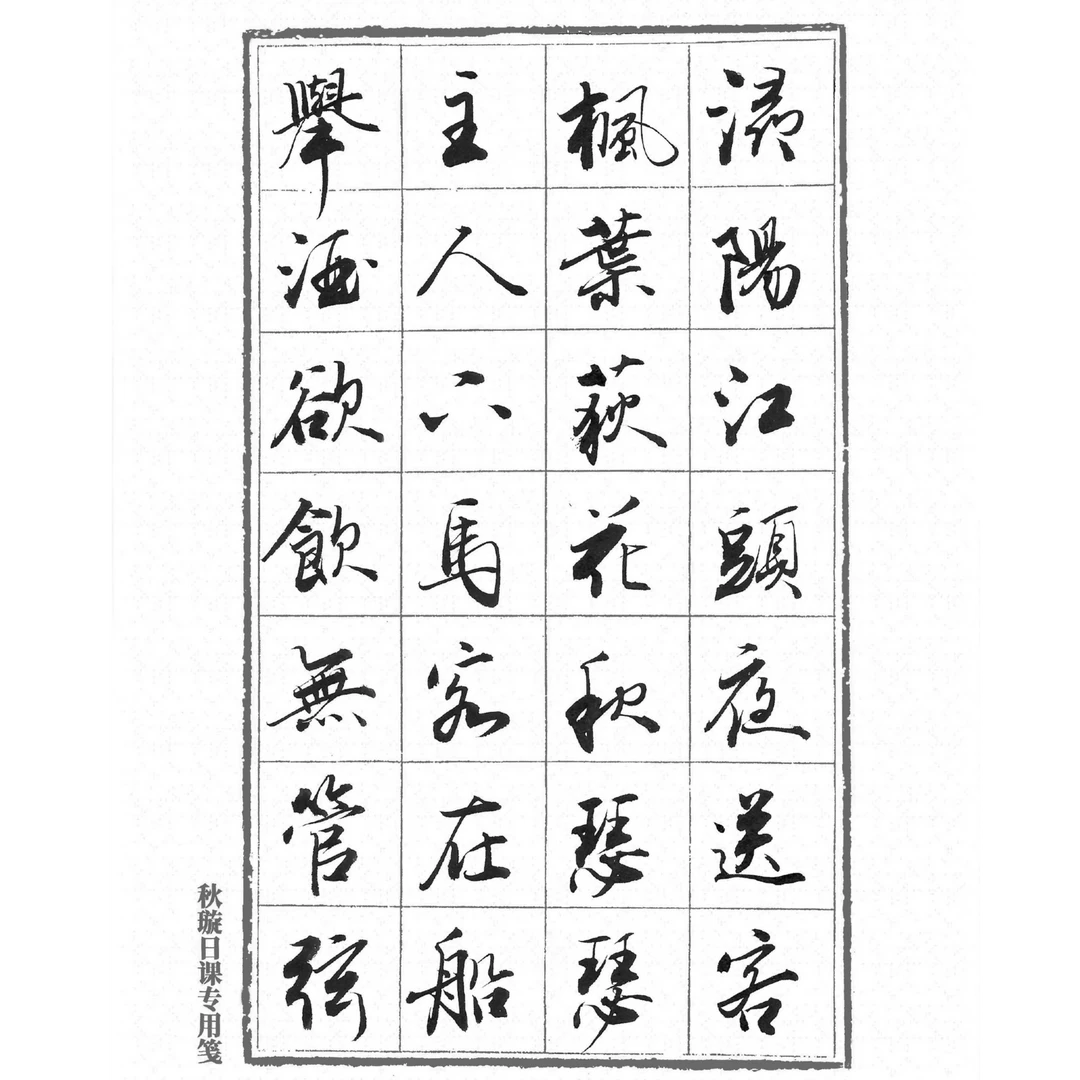 潯陽江頭夜送客
楓葉荻花秋瑟瑟
主人下馬客在船
舉酒欲飲無管弦
秋璇日课专用笺